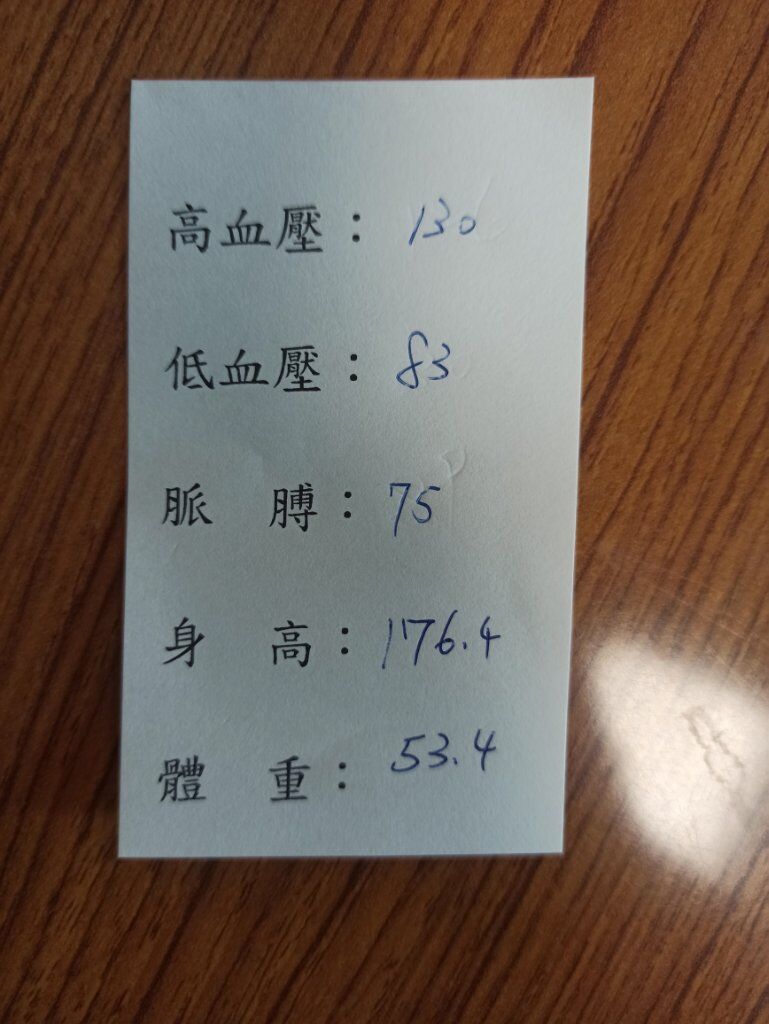 高血壓：130
低血壓：83
脈　膊：75
身　高：176.4
體　重：53.4